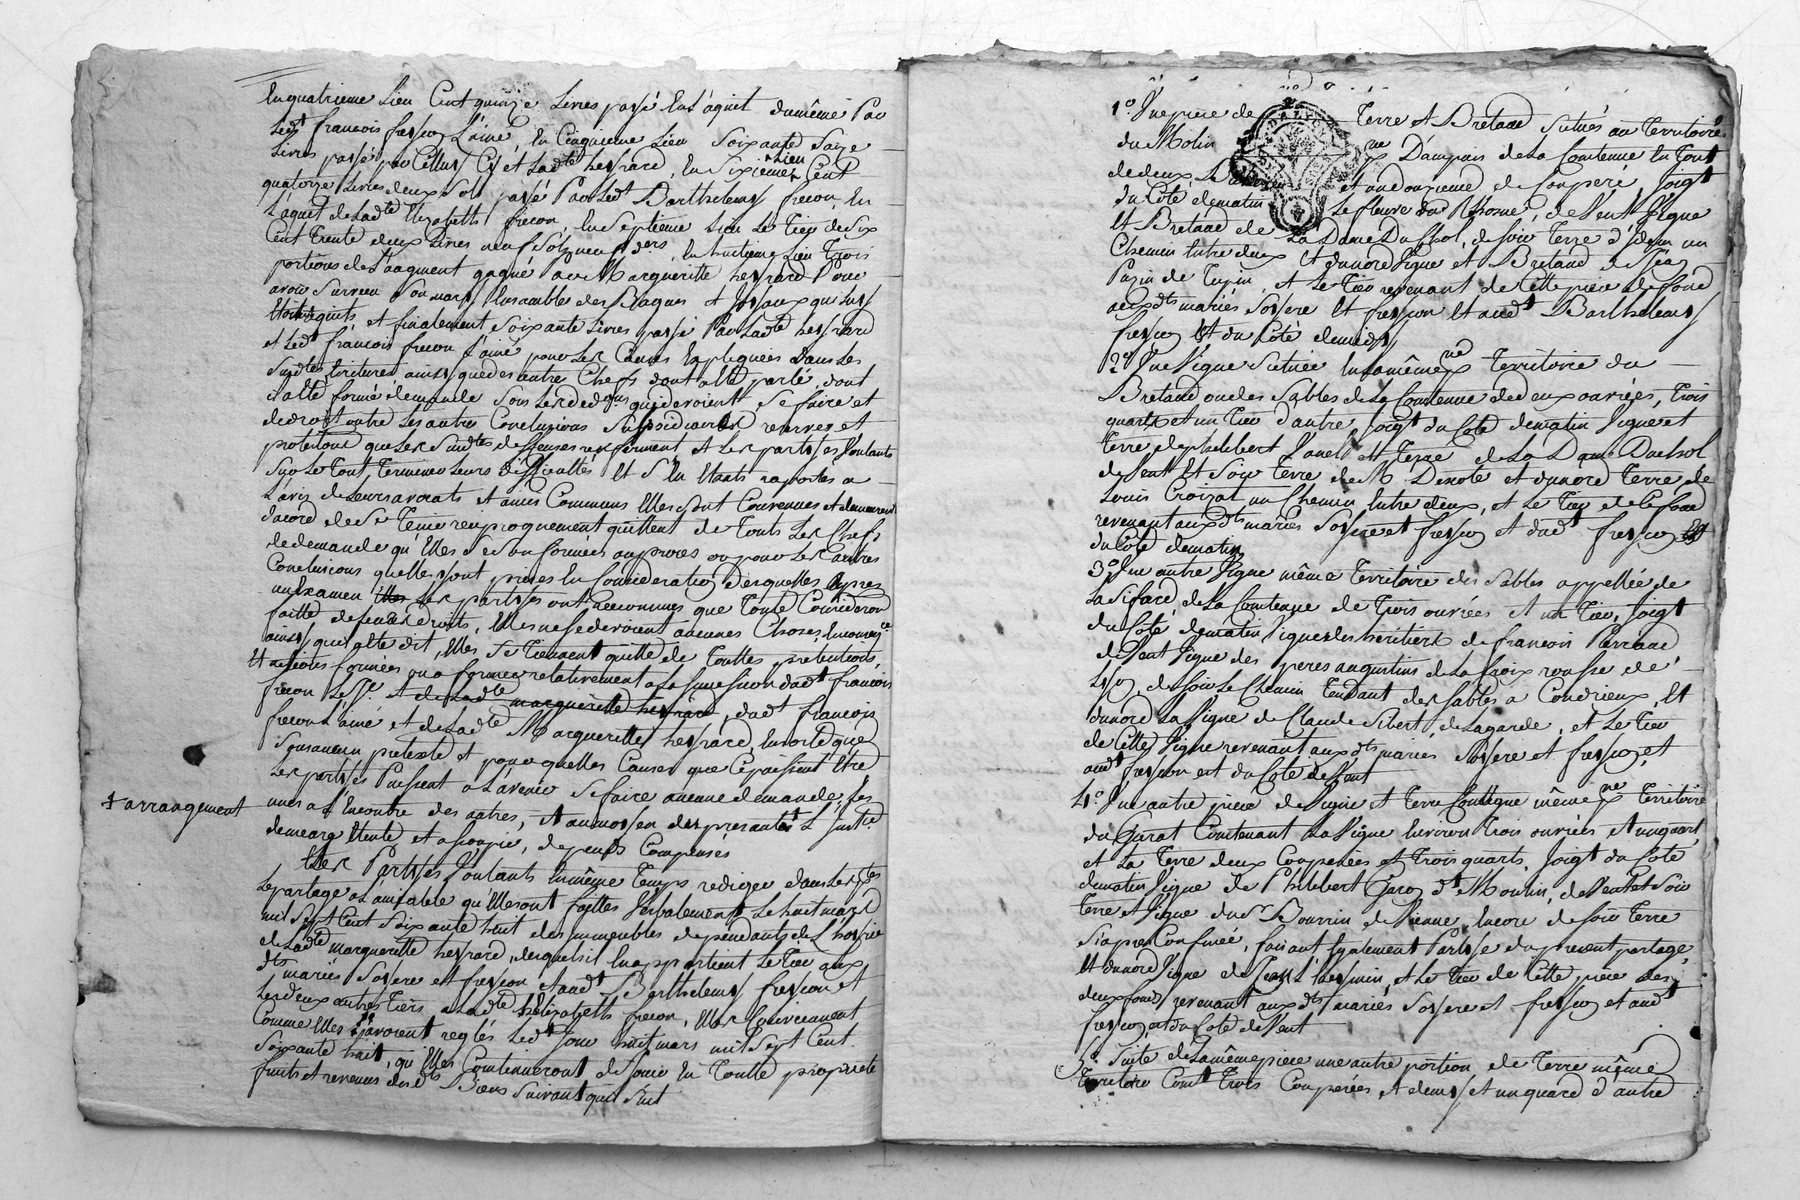 En quatrieme Lieu Cent quinze Livres payé En L'aquit dumême Par
Led.t françois fresson L'ainé, En Cinquieme Lieu Soixante Saize
Livres payé par et Lad.te heyrard, En Sixiême Lieu Cent
quatorze Livres deux Sols payé Par Led.t Barthelemy frecon En
L'aquit de Lad.te Elizabeth frecon, En Septieme Lieu Le Tier de Six
Cent Trente deux Livres neuf Sols neuf d.ers, En huitieme Lieu Trois
portions de L'augment gagné Par Marguerite heyrard Pour
avoir Survecu Son mary Ensembles des Bagues et Joyaux qui Luy
et finalement Soixante Livres payé Par Lad.te heyrard
et Led.t francois frecon L'ainé pour Les Causes Expliquées Dans Les
Susd.tes Ecritures ainsy que des autres Chefs dont a Eté parlé, dont
il a Eté formé demande Sous Les ded.ons qui devoient Se faire et
de droit outre Les autres Conclusions Subsidiaires reserves et
protestons que Les Susd.tes deffenses renferment, et Les parties Voulants
Sur Le Tout Terminer Leurs Difficultés Et S'En Etants raportés a
L'avis de Leurs avocats et amis Communs Elles Sont Convenues et demeurent
dacord de Se Tenir reciproquement quittent de Touts Les Chefs
de demande qu'Elles Se Sont formées ou pour Les autres
Conclusions quelles Sont prises En Consideration desquelles apres
un Examen Les parties ont reconnues que Toute Consideron
faitte de Leurs droits, Elles ne Se devoient aucunes Choses, En
ainsy qu'a Eté dit, Elles Se Tiennent quitte de Touttes pretentions,
Et actions formées ou a former relativement a La Succession dud.t francois
frecon Le P.e et de Lad.te marguerite heyrard, dud.t francois
frecon L'ainé et de Lad.te Marguerite heyrard, Ensorte que
Sous aucun pretexte et pour quelles Causes que Ce puissent Etre
Les parties Puissent a L'avenir Se faire aucune demande, Les
+ arrangement
unes a L'Encontre des autres, Et au moyen des presantes L'
demeure Eteinte et assoupie, depens Compensés
Les Parties Voulants En même Temps rediger dans Les
Le partage a L'amiable qu'Elles ont faittes Verbalement Le huit mars
mil Sept Cent Soixante huit des immeubles dependants de L'hoyrie
de Lad.te marguerite heyrard, desquels il En appartient Le Tier aux
d.ts mariés Soyere et fresson et aud.t Barthelemy fresson et
Les deux autres Tiers a Lad.te Elizabeth frecon, Elles Conviennent
Comme Elles L'avoient reglés Led.t Jour huit mars mil Sept Cent
Soixante huit, qu'Elles Continueront de Jouir En Toutte proprieté
fruits et revenus desd.ts Biens Suivants qui Sont
1.o Une piece de Terre et Bretaud Situés au Territoire
du Molin D'ampuis de La Contenue En Tout
de deux et une douzieme de Couperé, Joigt
du Côté de matin Le fleuve du Rhosne, de Vent Vigne
Et Bretaud de La Dame Duchol, de Soir Terre d'Idem un
Chemin Entre deux Et du nord Vigne et Bretaud de Jean
Pazin de Tupin, et Le Tier revenant de Cette piece de fond
aux d.ts mariés Soyere Et fresson Et aud.t Barthelemy
fresson Est du Côté de midy
2.o Une Vigne Située En La même Territoire du
Bretaud ou des Sables de La Contenue de deux ouvrées, Trois
quarts et un Tier d'autre, Joigt du Coté de matin Vigne et
Terre de philibert et Terre de La Dame Duchol
de Vent Et Soir Terre de M. Denote et du nord Terre de
Louis Croizat un Chemin Entre deux, et Le Tier de Ce fond
revenant aux d.ts mariés Soyere et fresson et aud.t fresson Est
du Côté de matin
3.o Une autre Vigne même Territoire des Sables appellée de
La de La Contenue de Trois ouvrées et un Tier, Joigt
du Coté de matin Vigne des héritiers de francois Perraud
de Vent Vigne des peres augustins de La Croix rousse de
Lyon, de Soir Le Chemin Tendant des Sables a Condrieux, Et
du nord La Vigne de Claude Sibert, de Lagarde, et Le Tier
de Cette Vigne revenant aux d.ts mariés Soyere et fresson, et
aud.t fresson est du Coté de Vent
4.o Une autre piece de Vigne et Terre Contigue même Territoire
du Garat Contenant La Vigne Environ Trois ouvrées et un quart
et La Terre deux Couperées et Trois quarts, Joigt du Coté
de matin Vigne de Philibert Garon d.t Moulin, de Vent et Soir
Terre et Vigne du S.r Bourrin de Vienne, Encore de Soir Terre
Si apres Confinée, faisant Egalement Partie du present partage,
Et du nord Vigne de Jean et Le Tier de Cette piece des
deux fonds revenant aux d.ts mariés Soyere et fresson et aud.t
fresson est du Coté de Vent
5.o Suite de La même piece une autre portion de Terre même
Territoire Cont.t Trois Couperées et demy et un quard d'autre